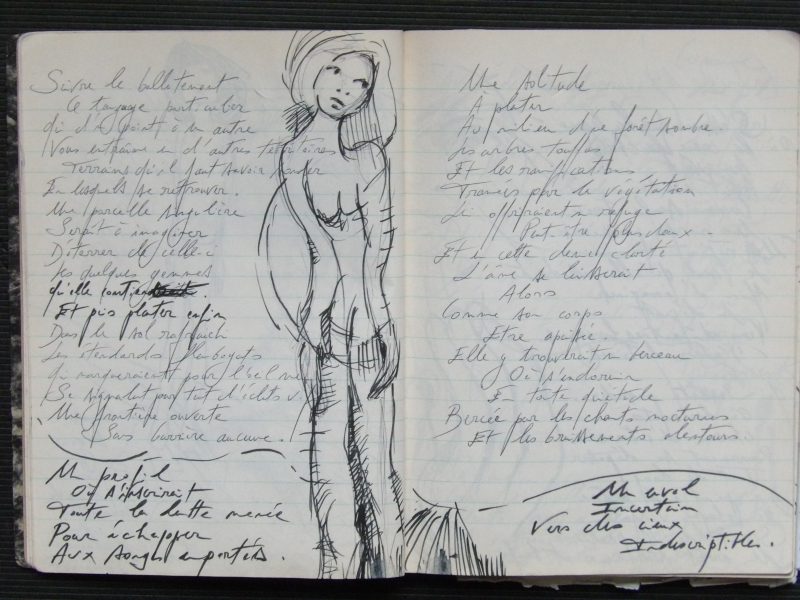 Suivre le ballotement
Ce tangage particulier
Qui d'un point à un autre
Vous entraîne en d'autres territoires
Terrains qu'il faut savoir
En lesquels se retrouver.
Une parcelle singulière
Serait à imaginer
Déterrer de celle-ci
Les quelques gemmes
qu'elle contient.
Et puis planter enfin
Dans le sol rafraîchi
Les étendards flamboyants
qui marqueraient pour
Se signalant pour tout d'éclats
Une frontière ouverte
Sans barrière aucune.
Un profil
Où s'inscrirait
Toute la lutte menée
Pour échapper
Aux songes emportés.
Une solitude
A planter
Au milieu d'une forêt sombre.
Les arbres touffus
Et les ramifications
Tramées par la végétation
Lui offriraient un refuge
Peut-être plus doux.
Et en cette demie clarté
L'âme se laisserait
Alors
Comme son corps
Etre apaisée.
Elle y trouverait un berceau
Où s'endormir
En toute quiétude
Bercée par les chants nocturnes
Et les bruissements alentours.
Un envol
Incertain
Vers des cieux
Indescriptibles.